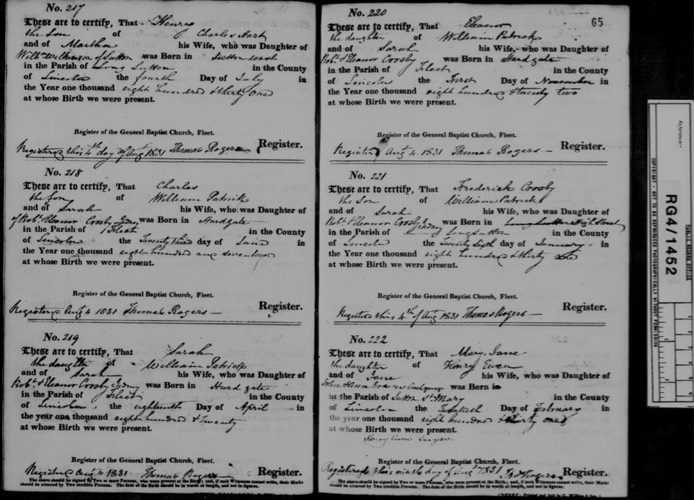 No. 217
These are to certify, That Henry
the Son of Charles Hart
and of Martha his Wife, who was Daughter of
of Sutton was Born in Sutton
in the Parish of Long Sutton in the County
of Lincoln the fourth Day of July in
the Year one thousand eight hundred & thirty One
at whose Birth we were present.
Register of the General Baptist Church, Fleet.
Registered this 4th day of Augt 1831 Thomas Rogers Register.
No. 218
These are to certify, That Charles
the Son of William Patrick
and of Sarah his Wife, who was Daughter
of Robt. & Eleanor Crosby was Born in Hardgate
in the Parish of Fleet in the County
of Lincoln the Twenty third day of June in the
Year one thousand eight hundred and seventeen
at whose Birth we were present.
Register of the General Baptist Church, Fleet.
Registered Aug 4 1831 Thomas Rogers Register.
No. 219
These are to certify, That Sarah
the daughter of William Patrick
and of Sarah his Wife, who was Daughter of
Robt. & Eleanor Crosby was Born in Hardgate
in the Parish of Fleet in the County
of Lincoln, the eighteenth Day of April in
the year one thousand eight hundred & twenty
at whose Birth we were present.
Register of the General Baptist Church, Fleet.
Registered Aug 4 1831 Thomas Rogers Register.
The above should be signed by Two or more Persons, who were present at the Birth; and, if such Witnesses cannot write, their Marks
should be attested by two credible Persons. The date of the Birth should be in words at length, and not in figures.
65
No. 220
These are to certify, That Eleanor
the daughter of William Patrick
and of Sarah his Wife, who was Daughter of
Robt. & Eleanor Crosby was Born in Hardgate
in the Parish of Fleet in the County
of Lincoln the first Day of November in
the Year one thousand eight hundred & twenty two
at whose Birth we were present.
Register of the General Baptist Church, Fleet.
Registered Aug 4. 1831 Thomas Rogers Register.
No. 221
These are to certify, That Frederick Crosby
the Son of William Patrick
and of Sarah his Wife, who was Daughter of
Robt. & Eleanor Crosby was Born in
in the Parish of Long Sutton in the County
of Lincoln the Twenty Sixth day of January in the
Year one thousand eight hundred & thirty
at whose Birth we were present.
Register of the General Baptist Church, Fleet.
Registered this 4th of Aug 1831 Thomas Rogers Register.
No. 222
These are to certify, That Mary Jane
the daughter of Henry Ewen
and of Jane his Wife, who was Daughter of
was Born in
in the Parish of Sutton St Mary in the County
of Lincoln the Day of February in
the year one thousand eight hundred & thirty one
at whose Birth we were present.
Register of the General Baptist Church, Fleet.
Registered this ninth day of Augt 1831 Register.
The above should be signed by Two or more Persons, who were present at the Birth; and, if such Witnesses cannot write, their Marks
should be attested by two credible Persons. The date of the Birth should be in words at length, and not in figures.
RG4/1452